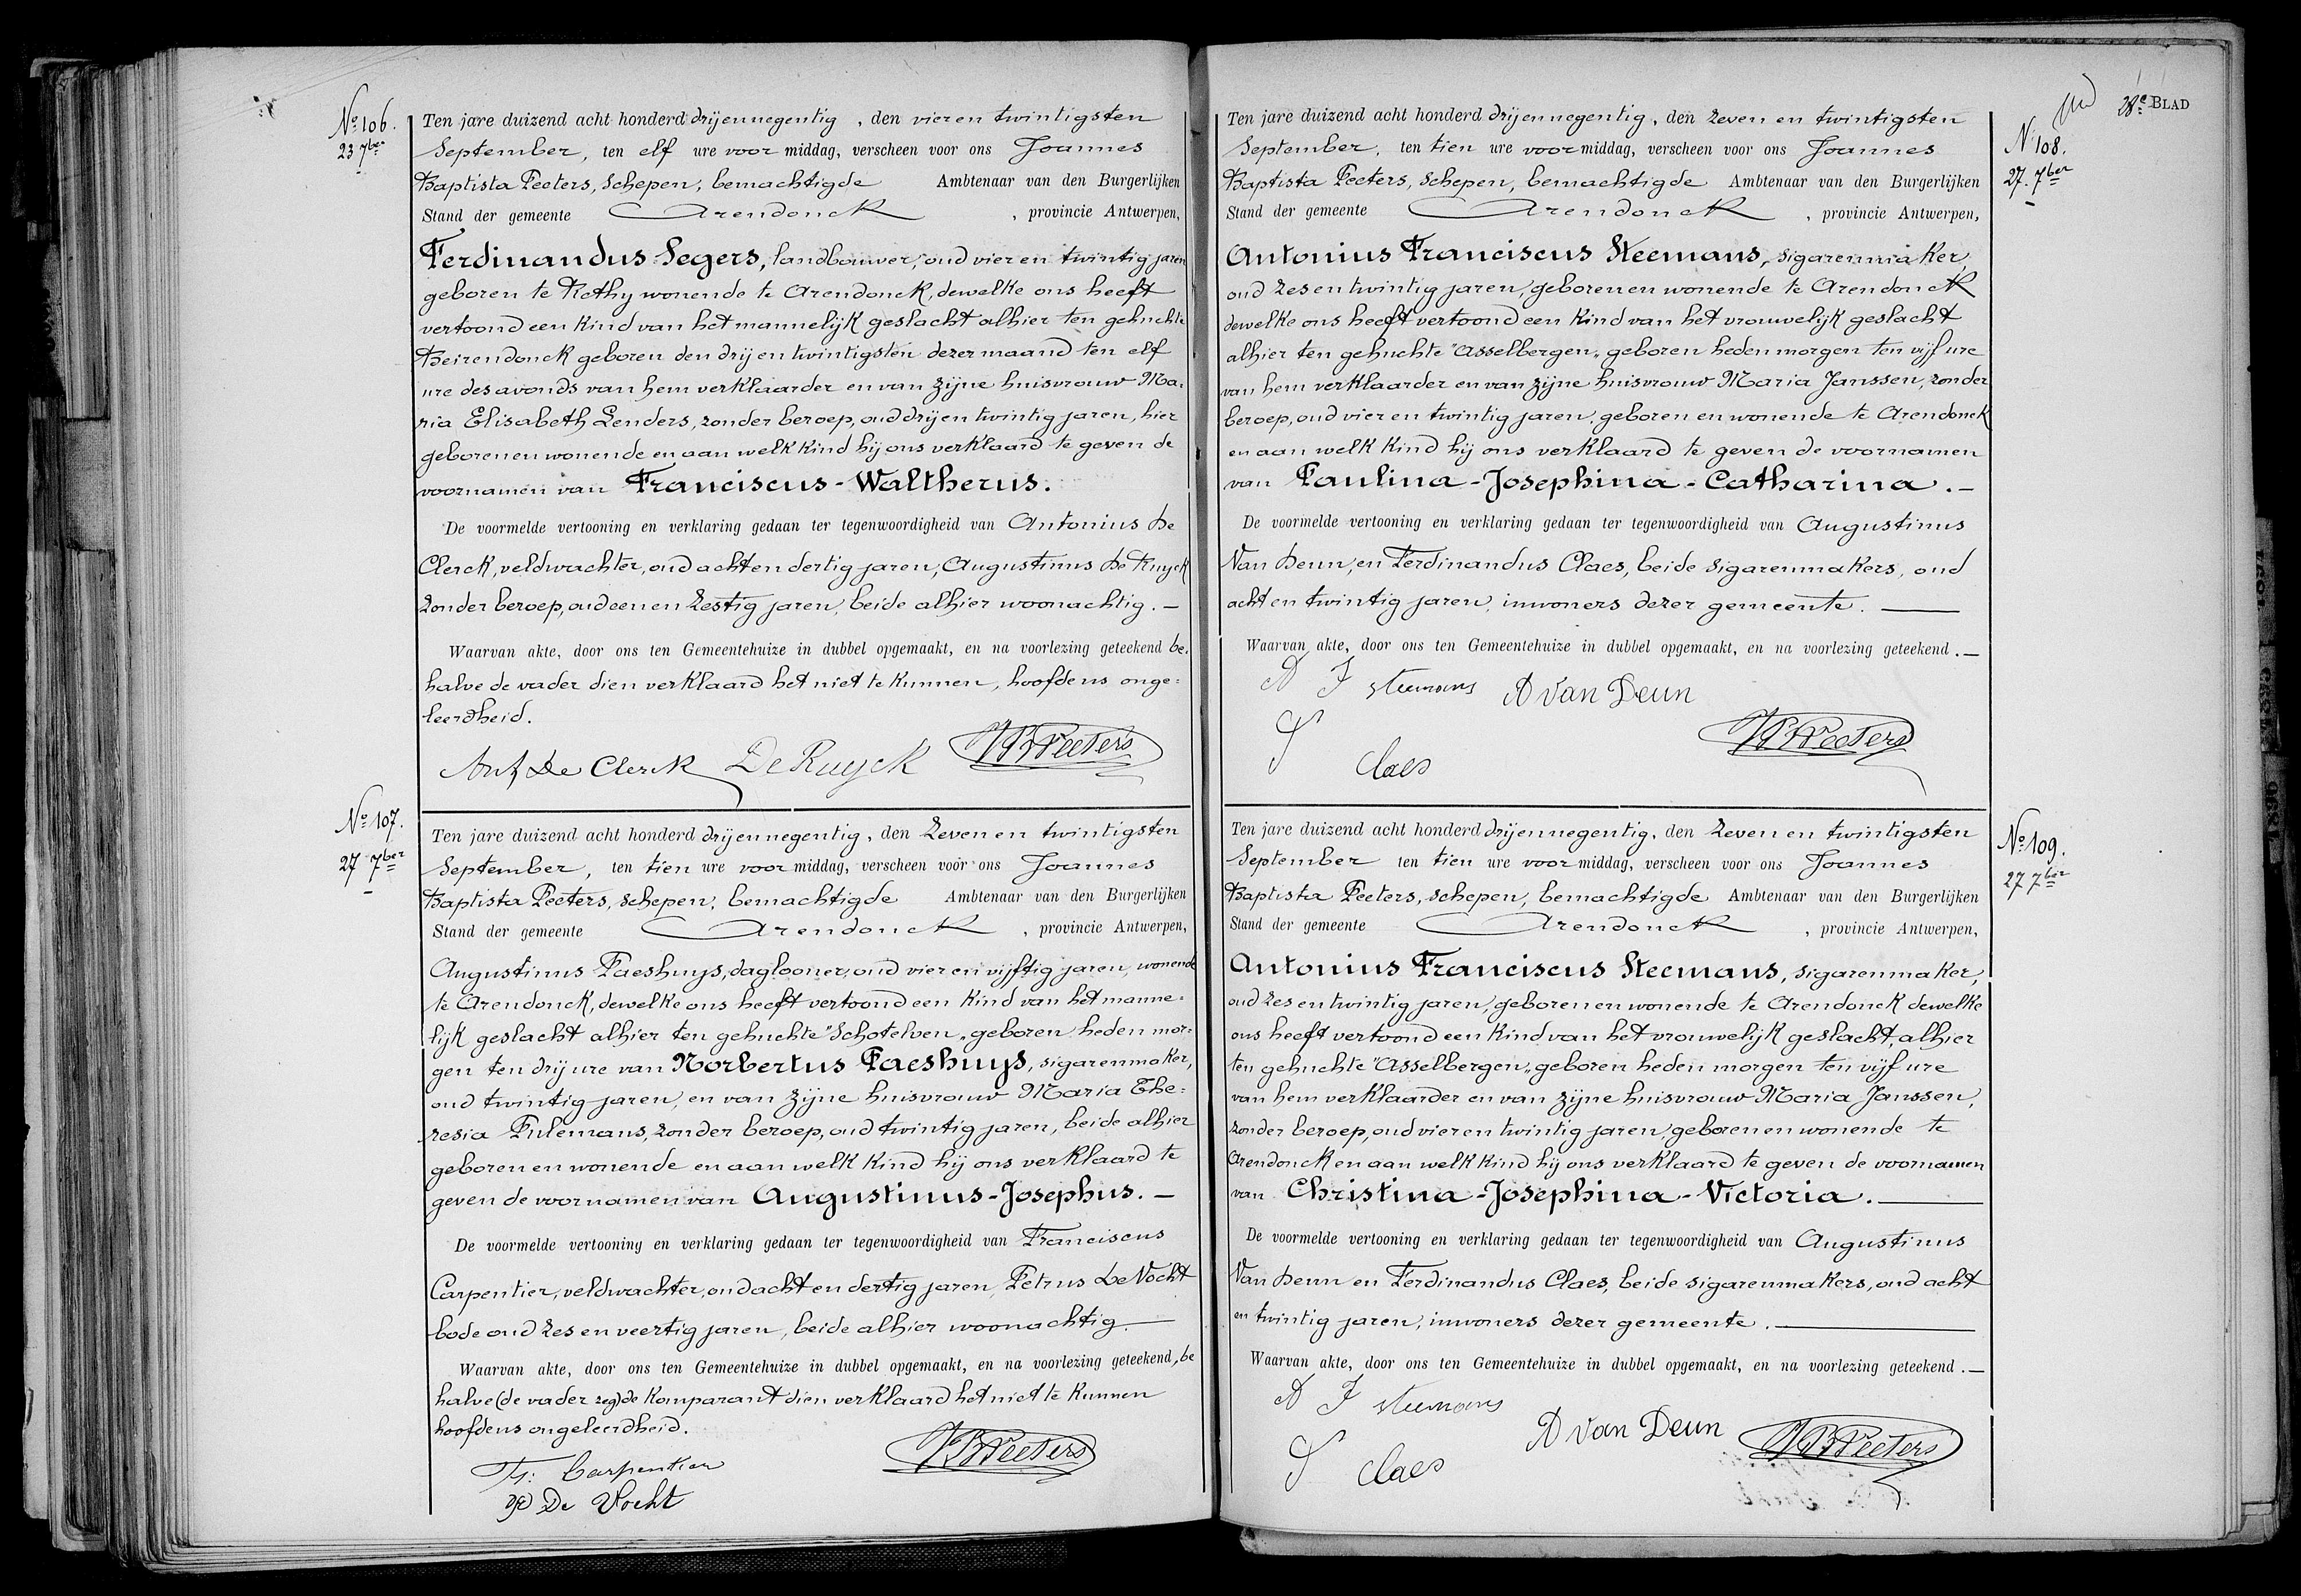 Nº 106.
23 7ber
Ten jare duizend acht honderd drijennegentig, den vier en twintigsten
September, ten elf ure voor middag, verscheen voor ons Joannes
Baptista Peeters, Schepen, bemachtigde Ambtenaar van den Burgerlijken
Stand der gemeente Arendonck, provincie Antwerpen,
Ferdinandus Segers, landbouwer, oud vier en twintig jaren
geboren te Rethy wonende te Arendonck, dewelke ons heeft
vertoond een kind van het mannelijk geslacht alhier ten gehuchte
Beirendonck geboren den drij en twintigsten dezer maand ten elf
ure des avonds van hem verklaarder en van zijne huisvrouw Ma-
ria Elisabeth Lenders, zonder beroep, oud drij en twintig jaren, hier
geboren en wonende en aan welk kind hij ons verklaard te geven de
voornamen van Franciscus-Waltherus.
De voormelde vertooning en verklaring gedaan ter tegenwoordigheid van Antonius De
Clerck, veldwachter, oud acht en dertig jaren, Augustinus De Ruyck
zonder beroep, oud een en zestig jaren, beide alhier woonachtig. —
Waarvan akte, door ons ten Gemeentehuize in dubbel opgemaakt, en na voorlezing geteekend be-
halve de vader dien verklaard het niet te kunnen, hoofdens onge=
leerdheid.
Ant De Clerck De Ruyck JB Peeters
Nº 107.
27 7ber
Ten jare duizend acht honderd drijennegentig, den zeven en twintigsten
September, ten tien ure voor middag, verscheen voor ons Joannes
Baptista Peeters, Schepen, bemachtigde Ambtenaar van den Burgerlijken
Stand der gemeente Arendonck, provincie Antwerpen,
Augustinus Paeshuys, daglooner, oud vier en vijftig jaren, wonende
te Arendonck, dewelke ons heeft vertoond een kind van het manne=
lijk geslacht alhier ten gehuchte "Schotelven" geboren heden mor=
gen ten drij ure van Norbertus Paeshuys, sigarenmaker,
oud twintig jaren, en van zijne huisvrouw Maria The=
resia Fulemans, zonder beroep, oud twintig jaren, beide alhier
geboren en wonende en aan welk kind hij ons verklaard te
geven de voornamen van Augustinus-Josephus. —
De voormelde vertooning en verklaring gedaan ter tegenwoordigheid van Franciscus
Carpentier, veldwachter, oud acht en dertig jaren, Petrus De Vocht
bode oud zes en veertig jaren, beide alhier woonachtig. —
Waarvan akte, door ons ten Gemeentehuize in dubbel opgemaakt, en na voorlezing geteekend, be
halve (de vader zeg) de komparant dien verklaard het niet te kunnen
hoofdens ongeleerdheid.
Fr: Carpentier JB Peeters
De Vocht
28e BLAD
Nº 108.
27. 7ber
Ten jare duizend acht honderd drijennegentig, den zeven en twintigsten
September, ten tien ure voor middag, verscheen voor ons Joannes
Baptista Peeters, Schepen, bemachtigde Ambtenaar van den Burgerlijken
Stand der gemeente Arendonck, provincie Antwerpen,
Antonius Franciscus Steemans, sigarenmaker,
oud zes en twintig jaren, geboren en wonende te Arendonck
dewelke ons heeft vertoond een kind van het vrouwelijk geslacht
alhier ten gehuchte "Asselbergen" geboren heden morgen ten vijf ure
van hem verklaarder en van zijne huisvrouw Maria Janssen, zonder
beroep, oud vier en twintig jaren, geboren en wonende te Arendonck
en aan welk kind hij ons verklaard te geven de voornamen
van Paulina-Josephina-Catharina. —
De voormelde vertooning en verklaring gedaan ter tegenwoordigheid van Augustinus
Van Deun, en Ferdinandus Claes, beide sigarenmakers, oud
acht en twintig jaren, inwoners dezer gemeente. —
Waarvan akte, door ons ten Gemeentehuize in dubbel opgemaakt, en na voorlezing geteekend. —
A F steemans A Van Deun
Claes JB Peeters
Nº 109.
27 7ber
Ten jare duizend acht honderd drijennegentig, den zeven en twintigsten
September ten tien ure voor middag, verscheen voor ons Joannes
Baptista Peeters, Schepen, bemachtigde Ambtenaar van den Burgerlijken
Stand der gemeente Arendonck, provincie Antwerpen,
Antonius Franciscus Steemans, sigarenmaker,
oud zes en twintig jaren, geboren en wonende te Arendonck dewelke
ons heeft vertoond een kind van het vrouwelijk geslacht, alhier
ten gehuchte "Asselbergen" geboren heden morgen ten vijf ure
van hem verklaarder en van zijne huisvrouw Maria Janssen,
zonder beroep, oud vier en twintig jaren, geboren en wonende te
Arendonck en aan welk kind hij ons verklaard te geven de voornamen
van Christina-Josephina-Victoria. —
De voormelde vertooning en verklaring gedaan ter tegenwoordigheid van Augustinus
Van Deun en Ferdinandus Claes, beide sigarenmakers, oud acht
en twintig jaren, inwoners dezer gemeente. —
Waarvan akte, door ons ten Gemeentehuize in dubbel opgemaakt, en na voorlezing geteekend. —
A F steemans
A Van Deun JB Peeters
Claes